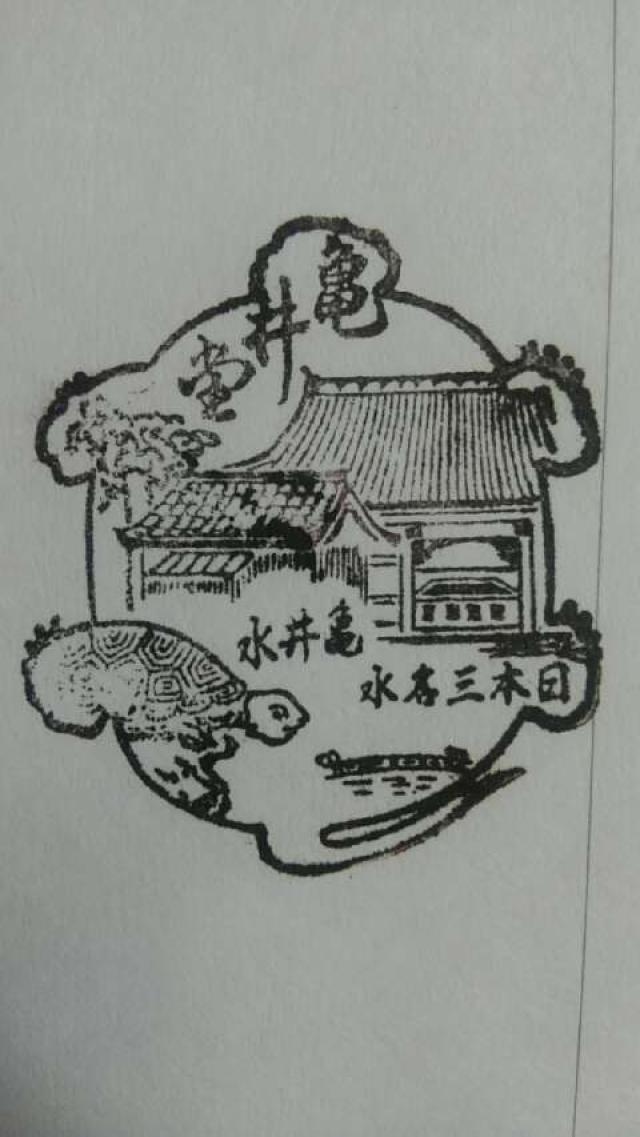 亀井堂
亀井水
日本三名水